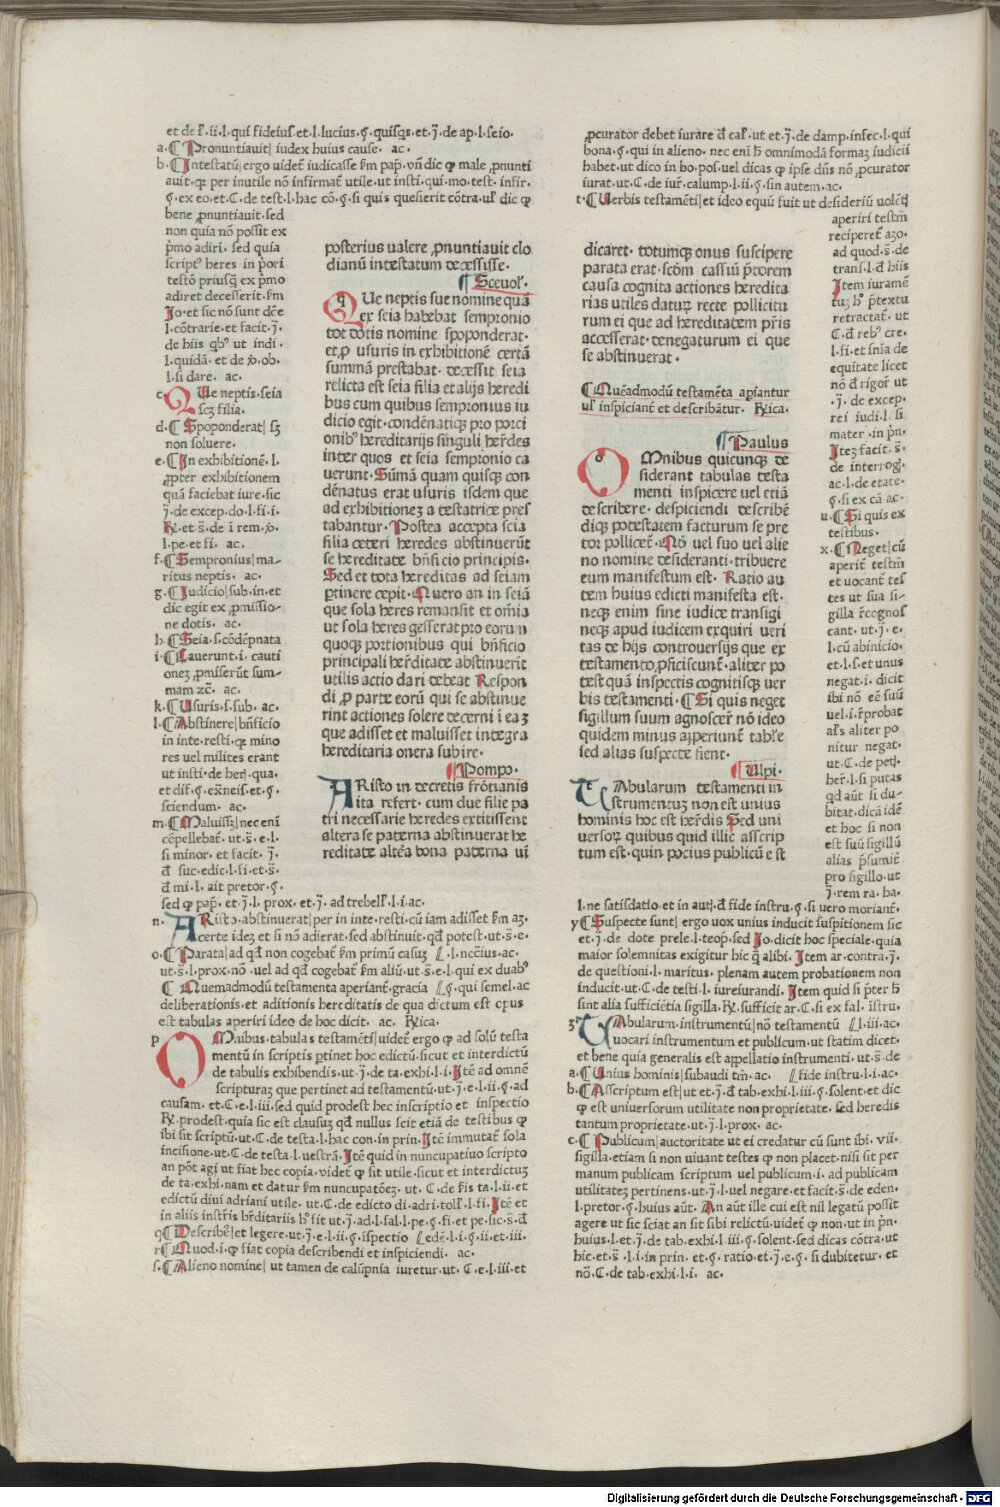 et de f̄. ii. l. qui fideius̄. et. l. lucius. §. quisq̄s. et. j̄. de ap. l. seio.
a. ¶ Pronuntiauit| iudex huius cause. ac.
b. ¶ Intestatū| ergo videt̄ iudicasse f̄m pap̄. vn̄ dic ꝙ male ꝓnunti
auit. qꝛ per inutile nō infirmat̄ utile. ut insti. qui. mo. test. infir.
§. ex eo. et. C. de test. l. hac cō. §. si quis. quesierit cōtra. ul̄ dic ꝙ
bene ꝓnuntiauit. sed
non quia nō possit ex
p̄mo adiri. sed quia
script̄ heres in p̄ori
testō priusq̄ ex p̄mo
adiret decesserit. f̄m
Jo. et sic nō sunt dc̄e
l. cōtrarie. et facit. j̄.
de hiis qb̄ ut indi.
l. quidā. et de ꝓ. ob.
l. si dare. ac.
c. QUe neptis. seia
scz filia.
d. ¶ Spoponderat| sz
non soluere.
e. ¶ In exhibitionē. l.
ꝓpter exhibitionem
quā faciebat iure. sic
j̄. de excep. do. l. fi. i.
℞. et. s̄. de i rem. ꝓ.
l. pe. et fi. ac.
f. ¶ Sempronius| ma-
ritus neptis. ac.
g. ¶ Judicio| sub. in. et
dic egit ex ꝓmissio-
ne dotis. ac.
h. ¶ Seia. s. cōdēpnata
i. ¶ Cauerunt. i. cauti
onez ꝓmiserūt sum-
mam zc̄. ac.
k. ¶ Usuris. s. sub. ac.
l. ¶ Abstinere| bn̄ficio
in inte. resti. qꝛ mino
res uel milites erant
ut insti. de her̄. qua.
et dif. §. ex̄neis. et. §.
sciendum. ac.
m. ¶ Maluissz| nec eni
cōpellebat̄. ut. s̄. e. l.
si minor. et facit. j̄.
đ suc. edic. l. fi. et. s̄.
đ mi. l. ait pretor. §.
sed ꝙ pap̄. et. j̄. l. prox. et. j̄. ad trebell̄. l. i. ac.
n. ARisto. abstinuerat| per in inte. resti. cū iam adisset f̄m az.
Acerte idez et si nō adierat. sed abstinuit. qđ potest. ut. s̄. e.
o. ¶ Parata| ad qđ non cogebat̄ f̄m primū casuz ⟦l. ncc̄ius. ac.
ut. s̄. l. prox. nō. vel ad qđ cogebat̄ f̄m aliū. ut. s̄. e. l. qui ex duab̄
¶ Quemadmodū testamenta aperiant̄. gracia ⟦§. qui semel. ac
deliberationis. et aditionis hereditatis de qua dictum est opus
est tabulas aperiri ideo de hoc dicit. ac. ℞ica.
p OMnibus. tabulas testamēti| uidet̄ ergo ꝙ ad solū testa
mentū in scriptis ꝑtinet hoc edictū. sicut et interdictū
de tabulis exhibendis. ut. j̄. de ta. exh. l. i. Itē ad omnē
scripturaꝫ que pertinet ad testamentū. ut. j̄. e. l. ii. §. ad
causam. et. C. e. l. iii. sed quid prodest hec inscriptio et inspectio
℞. prodest. quia sic est clausuꝫ qđ nullus scit etiā de testibus ꝙ
ibi sit scriptū. ut. C. de testa. l. hac con. in prin. Itē immutat̄ sola
incisione. ut. C. de testa. l. uestrā. Itē quid in nuncupatiuo scripto
an pōt agi ut fiat hec copia. videt̄ ꝙ sit utile. sicut et interdictuꝫ
de ta. exhi. nam et datur f̄m nuncupatōeꝫ. ut. C. de f̄is ta. l. ii. et
edictū diui adriani utile. ut. C. de edicto di. adri. toll̄. l. fi. Itē et
in aliis instr̄is hr̄ditariis h̄ fit ut. j̄. ad. l. fal. l. pe. §. fi. et pe. sic. s̄. đ
q. ¶ Describē| et legere. ut. j̄. e. l. ii. §. i̅spectio ⟦edē. l. i. §. ii. et iii.
r. ¶ Quod. i. ꝙ fiat copia describendi et inspiciendi. ac.
s. ¶ Alieno nomine| ut tamen de calūpnia iuretur. ut. C. e. l. iii. et
posterius ualere ꝓnuntiauit clo
dianū intestatum decessisse.
¶ Sceuol̄.
QUe neptis sue nomine quā
ex seia habebat sempronio
tot dotis nomine spoponderat.
et ꝓ usuris in exhibitionē certā
summā prestabat. decessit seia
relicta est seia filia et alijs heredi
bus cum quibus sempronius iu
dicio egit. condēnatiqꝫ pro porci
onib̄ hereditarijs singuli her̄des
inter quos et seia sempronio ca
uerunt. Sūmā quam quisqꝫ con
dēnatus erat usuris isdem que
ad exhibitioneꝫ a testatrice pres
tabantur. Postea accepta seia
filia ceteri heredes abstinuerūt
se hereditate bn̄ficio principis.
Sed et tota hereditas ad seiam
ꝑtinere cepit. Quero an in seiā
que sola heres remansit et om̄ia
ut sola heres gesserat pro eorun
quoqꝫ portionibus qui bn̄ficio
principali her̄ditate abstinuerīt
utilis actio dari debeat Respon
di ꝓ parte eorū qui se abstinue
rint actiones solere decerni i eaꝫ
que adisset et maluisset integra
hereditaria onera subire.
¶ Pompo.
ARisto in decretis frōtianis
ita refert. cum due filie pa
tri necessarie heredes extitissent
altera se paterna abstinuerat he
reditate altēa bona paterna uī
ꝓcurator debet iurare đ cal̄. ut et. j̄. de damp. infec. l. qui
bona. §. qui in alieno. nec eni h̄ omnimodā formaꝫ iudicii
habet. ut dico in bo. pos. vel dicas ꝙ ipse dn̄s nō ꝓcurator
iurat. ut. C. de iur̄. calump. l. ii. §. sin autem. ac.
t. ¶ Uerbis testamēti| et ideo equū fuit ut desideriū uolētj̄
aperiri testm̄
reciperet̄ azo.
ad quod. s̄. de
trans. l. đ hiis
Item iuramē
tuꝫ h̄ p̄textu
retractat̄. ut
C. đ reb̄ cre.
l. fi. et sn̄ia de
equitate licet
nō đ rigor̄ ut
. j̄. de excep.
rei iudi. l. si
mater. in pn̄.
Iteꝫ facit. s̄.
de interrogj̄.
ac. l. de etate.
§. si ex cā ac.
u. ¶ Si quis ex
testibus.
x. ¶ Neget| cū
aperit̄ testm̄
et uocant̄ tes
tes ut sua si-
gilla r̄cognos
cant. ut. j̄. e.
l. cū abinicio.
et. l. s. et unus
negat. i. dicit
ibi nō eē suū
uel. i. r̄probat
al̄s aliter po
nitur negat.
ut. C. de petj̄.
her̄. l. si putas
qđ aūt si du-
bitat. dicā idē
et hoc si non
est suū sigillū
alias p̄sumit̄
pro sigillo. ut
j̄. rem ra. ha.
l. ne satisdatio et in autj̄. đ fide instru. §. si vero moriant̄.
y ¶ Suspecte sunt| ergo uox unius inducit suspitionem sic
et. j̄. de dote prele. l. teop̄. sed Jo. dicit hoc speciale. quia
maior solemnitas exigitur hic q̄ alibi. Item ar. contra. j̄.
de questioni. l. maritus. plenam autem probationem non
inducit. ut. C. de testi. l. iureiurandi. Item quid si p̄ter h̄
sint alia sufficiētia sigilla. ℞. sufficit ar. C. si ex fal. i̅stru.
z TAbularum. instrumentū| nō testamentū ⟦l. iii. ac.
uocari instrumentum et publicum. ut statim dicet.
et bene quia generalis est appellatio instrumenti. ut. s̄. de
a. ¶ Unius hominis| subaudi tm̄. ac. ⟦fide instru. l. i. ac.
b. ¶ Asscriptum est| ut et. j̄. đ tab. exh. l. iii. §. solent. et dic
ꝙ est uniuersorum utilitate non proprietate. sed heredis
tantum proprietate. ut. j̄. l. prox. ac.
c. ¶ Publicum| auctoritate ut ei credatur cū sunt ibi. vii.
sigilla. etiam si non uiuant testes ꝙ non placet. nisi sit per
manum publicam scriptum uel publicum. i. ad publicam
utilitateꝫ pertinens. ut. j̄. l. uel negare. et facit. s̄. de eden.
l. pretor. §. huius aūt. An aūt ille cui est nil legatū possit
agere ut sic sciat an sit sibi relictū. uidet̄ ꝙ non. ut in pn̄.
huius. l. et. j̄. de tab. exh. l. iii. §. solent. sed dicas cōtra. ut
hic. et. s̄. l. i. in prin. et. §. ratio. et. j̄. e. §. si dubitetur. et
nō. C. de tab. exhi. l. i. ac.
dicaret. totumqꝫ onus suscipere
parata erat. scōm cassiū p̄torem
causa cognita actiones heredita
rias utiles daturꝫ recte pollicitu
rum ei que ad hereditatem pr̄is
accesserat. denegaturum ei que
se abstinuerat.
¶ Quēadmodū testamēta apiantur
ul̄ inspiciant̄ et describātur. ℞ica.
¶ Paulus
OMnibus quicunqꝫ de
siderant tabulas testa
menti inspicere uel etiā
describere. despiciendi describē
diqꝫ potestatem facturum se pre
tor pollicet̄. Nō uel suo uel alie
no nomine desideranti. tribuere
eum manifestum est. Ratio au
tem huius edicti manifesta est.
neqꝫ enim sine iudice transigi
neqꝫ apud iudicem exquiri ueri
tas de hijs controuersijs que ex
testamento ꝓficiscunt̄. aliter po
test quā inspectis cognitisqꝫ uer
bis testamenti. ¶ Si quis neget
sigillum suum agnoscer̄ nō ideo
quidem minus aꝑperiunt̄ tabl̄e
sed alias suspecte fient.
¶ Ulpi.
TAbularum testamenti in
strumentuꝫ non est unius
hominis hoc est her̄dis Sed uni
uersorꝫ quibus quid illic asscrip
tum est. quin pocius publicū e st
Digitalisierung gefördert durch die Deutsche Forschungsgemeinschaft - DFG